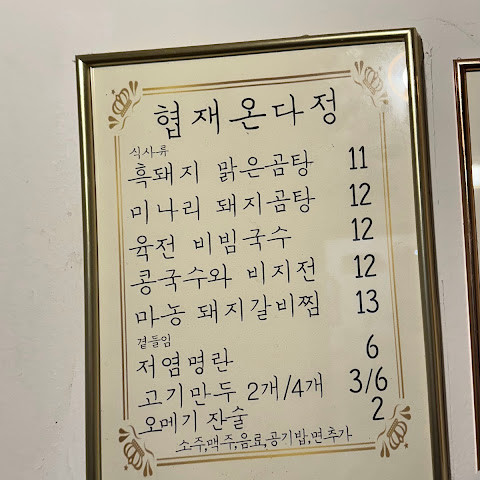 협재온다정
식사류
흑돼지 맑은곰탕 11
미나리 돼지곰탕 12
육전 비빔국수 12
콩국수와 비지전 12
마농 돼지갈비찜 13
곁들임
저염명란 6
고기만두 2개/4개 3/6
오메기 잔술 2
소주,맥주,음료,공기밥,면추가